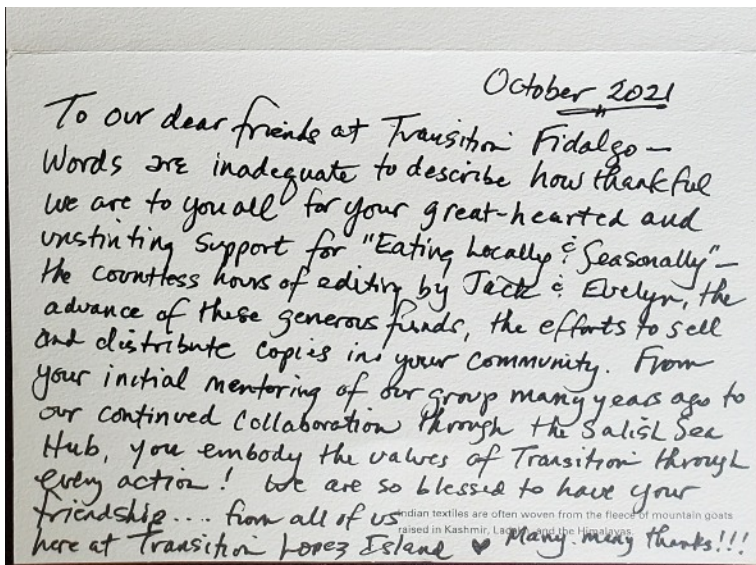 October 2021
To our dear friends at Transition Fidalgo —
Words are inadequate to describe how thankful
we are to you all for your great-hearted and
unstinting support for "Eating Locally & Seasonally" —
the countless hours of editing by Jack & Evelyn, the
advance of these generous funds, the efforts to sell
and distribute copies in your community. From
your initial mentoring of our group many years ago to
our continued collaboration through the Salish Sea
Hub, you embody the values of Transition through
every action! We are so blessed to have your
friendship.... from all of us
Indian textiles are often woven from the fleece of mountain goats
raised in Kashmir, Ladakh and the Himalayas.
here at Transition Lopez Island ♥ Many, many thanks!!!